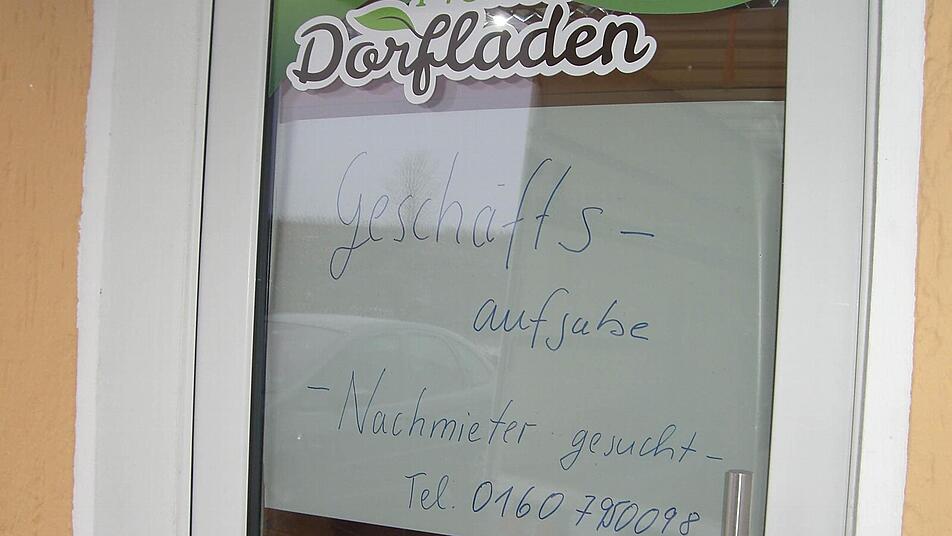 Dorfladen
Geschäfts-
aufgabe
- Nachmieter gesucht -
Tel. 0160 7950098